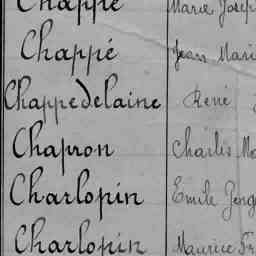 Chappé Marie Josep
Chappé Jean Mari
Chappedelaine René
Chapron Charles Ma
Charlopin Emile Geng
Charlopin Maurice Fr